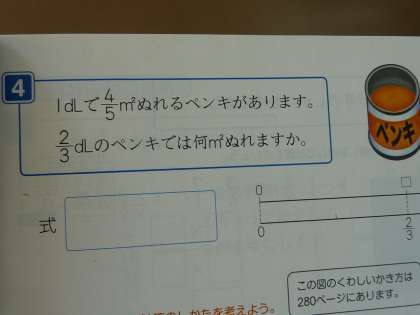 4
1dLで4/5m²ぬれるペンキがあります。
2/3dLのペンキでは何m²ぬれますか。
ペンキ
式
0 □
0 2/3
この図のくわしいかき方は
280ページにあります。
のしかたを考えよう。